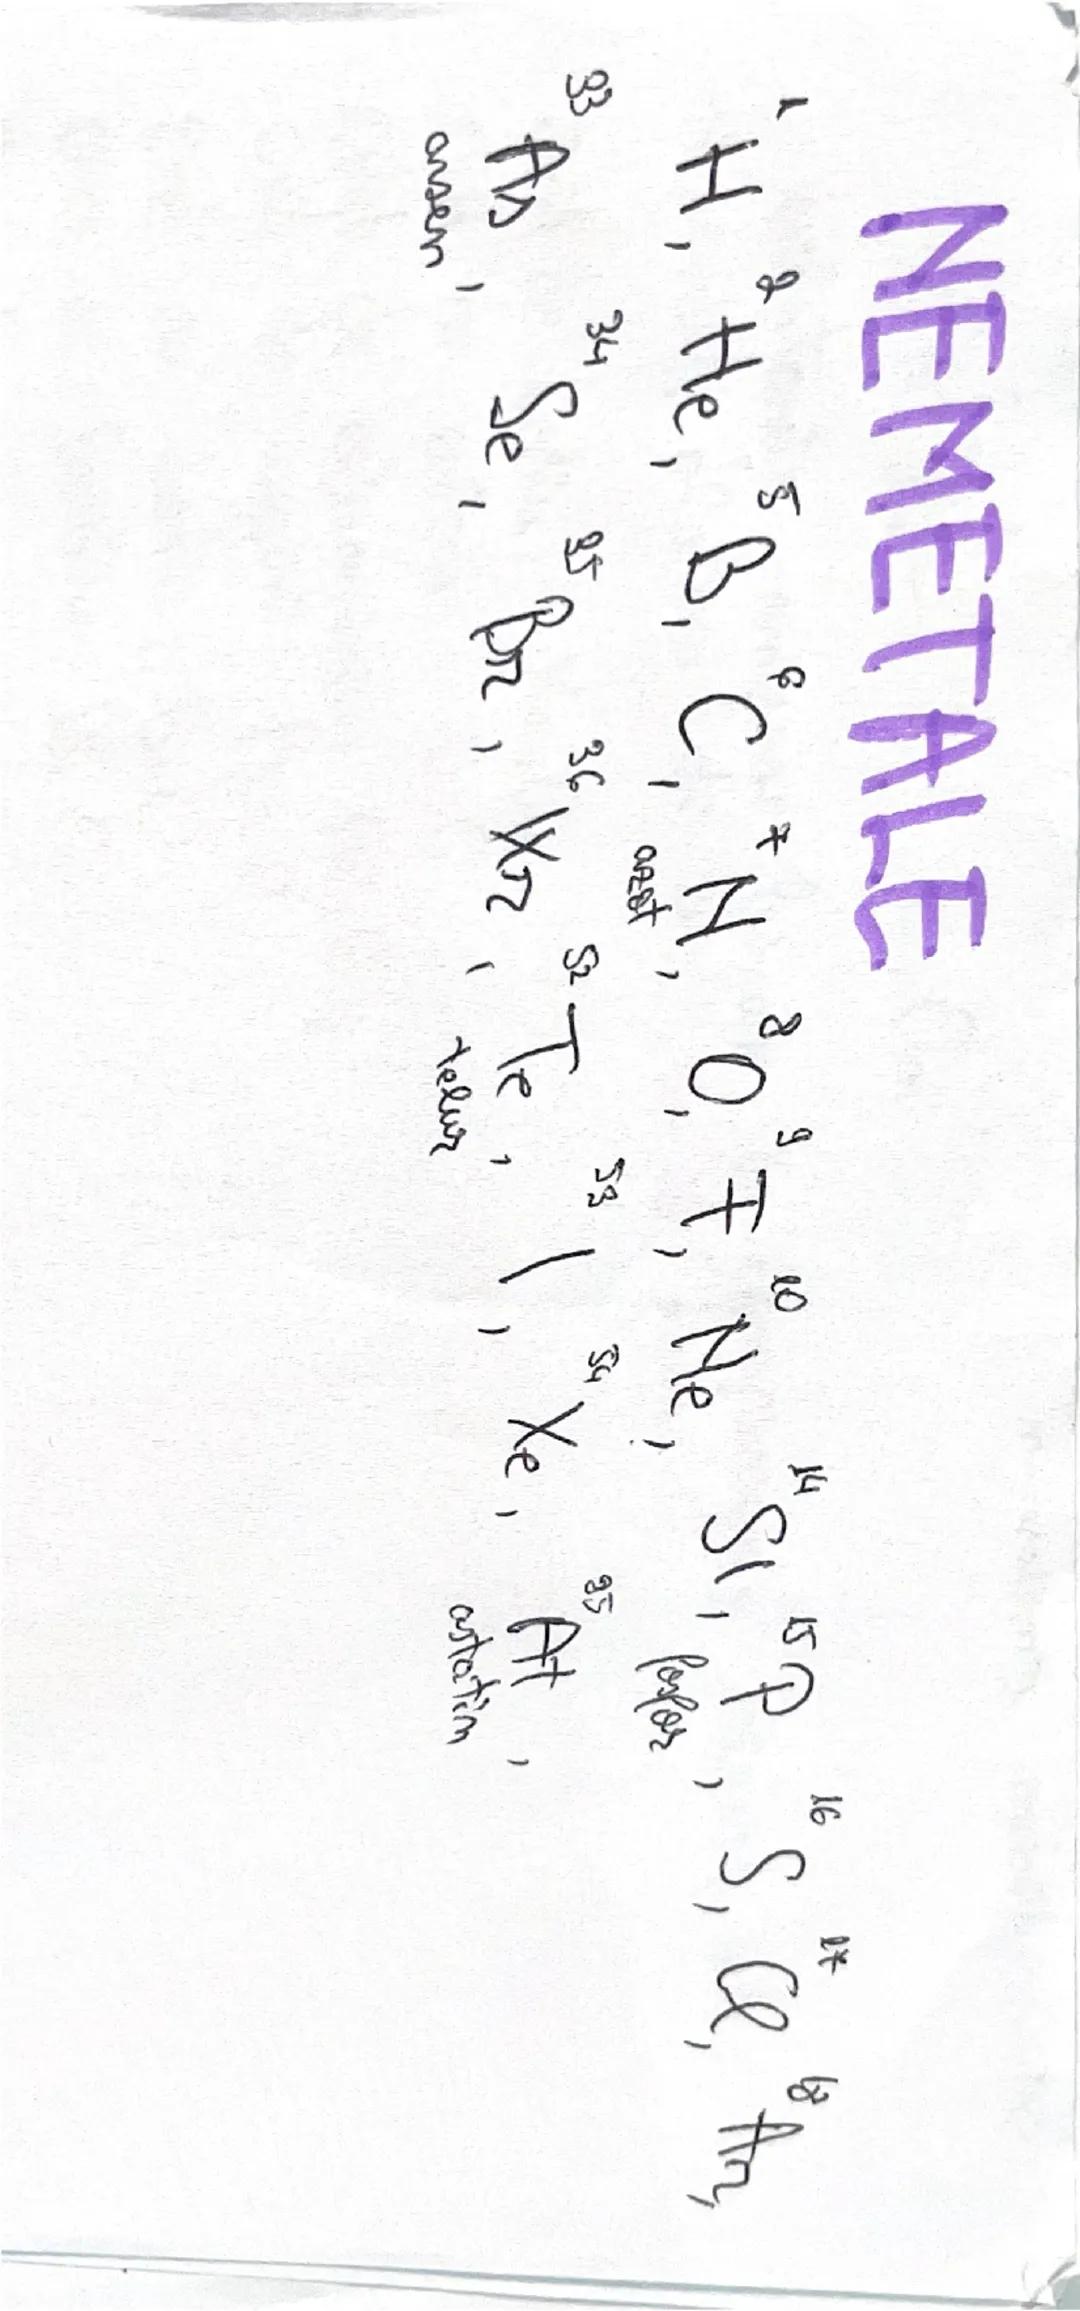 NEMETALE
1 H, 2 He, 5 B, 6 C, 7 N, 8 O, 9 F, 10 Ne, 14 Si, 15 P, 16 S, 17 Cl, 18 Ar,
azot fosfor
33 As, 34 Se, 35 Br, 36 Kr, 52 Te, 53 I, 54 Xe, 85 At,
arsen telur astatin